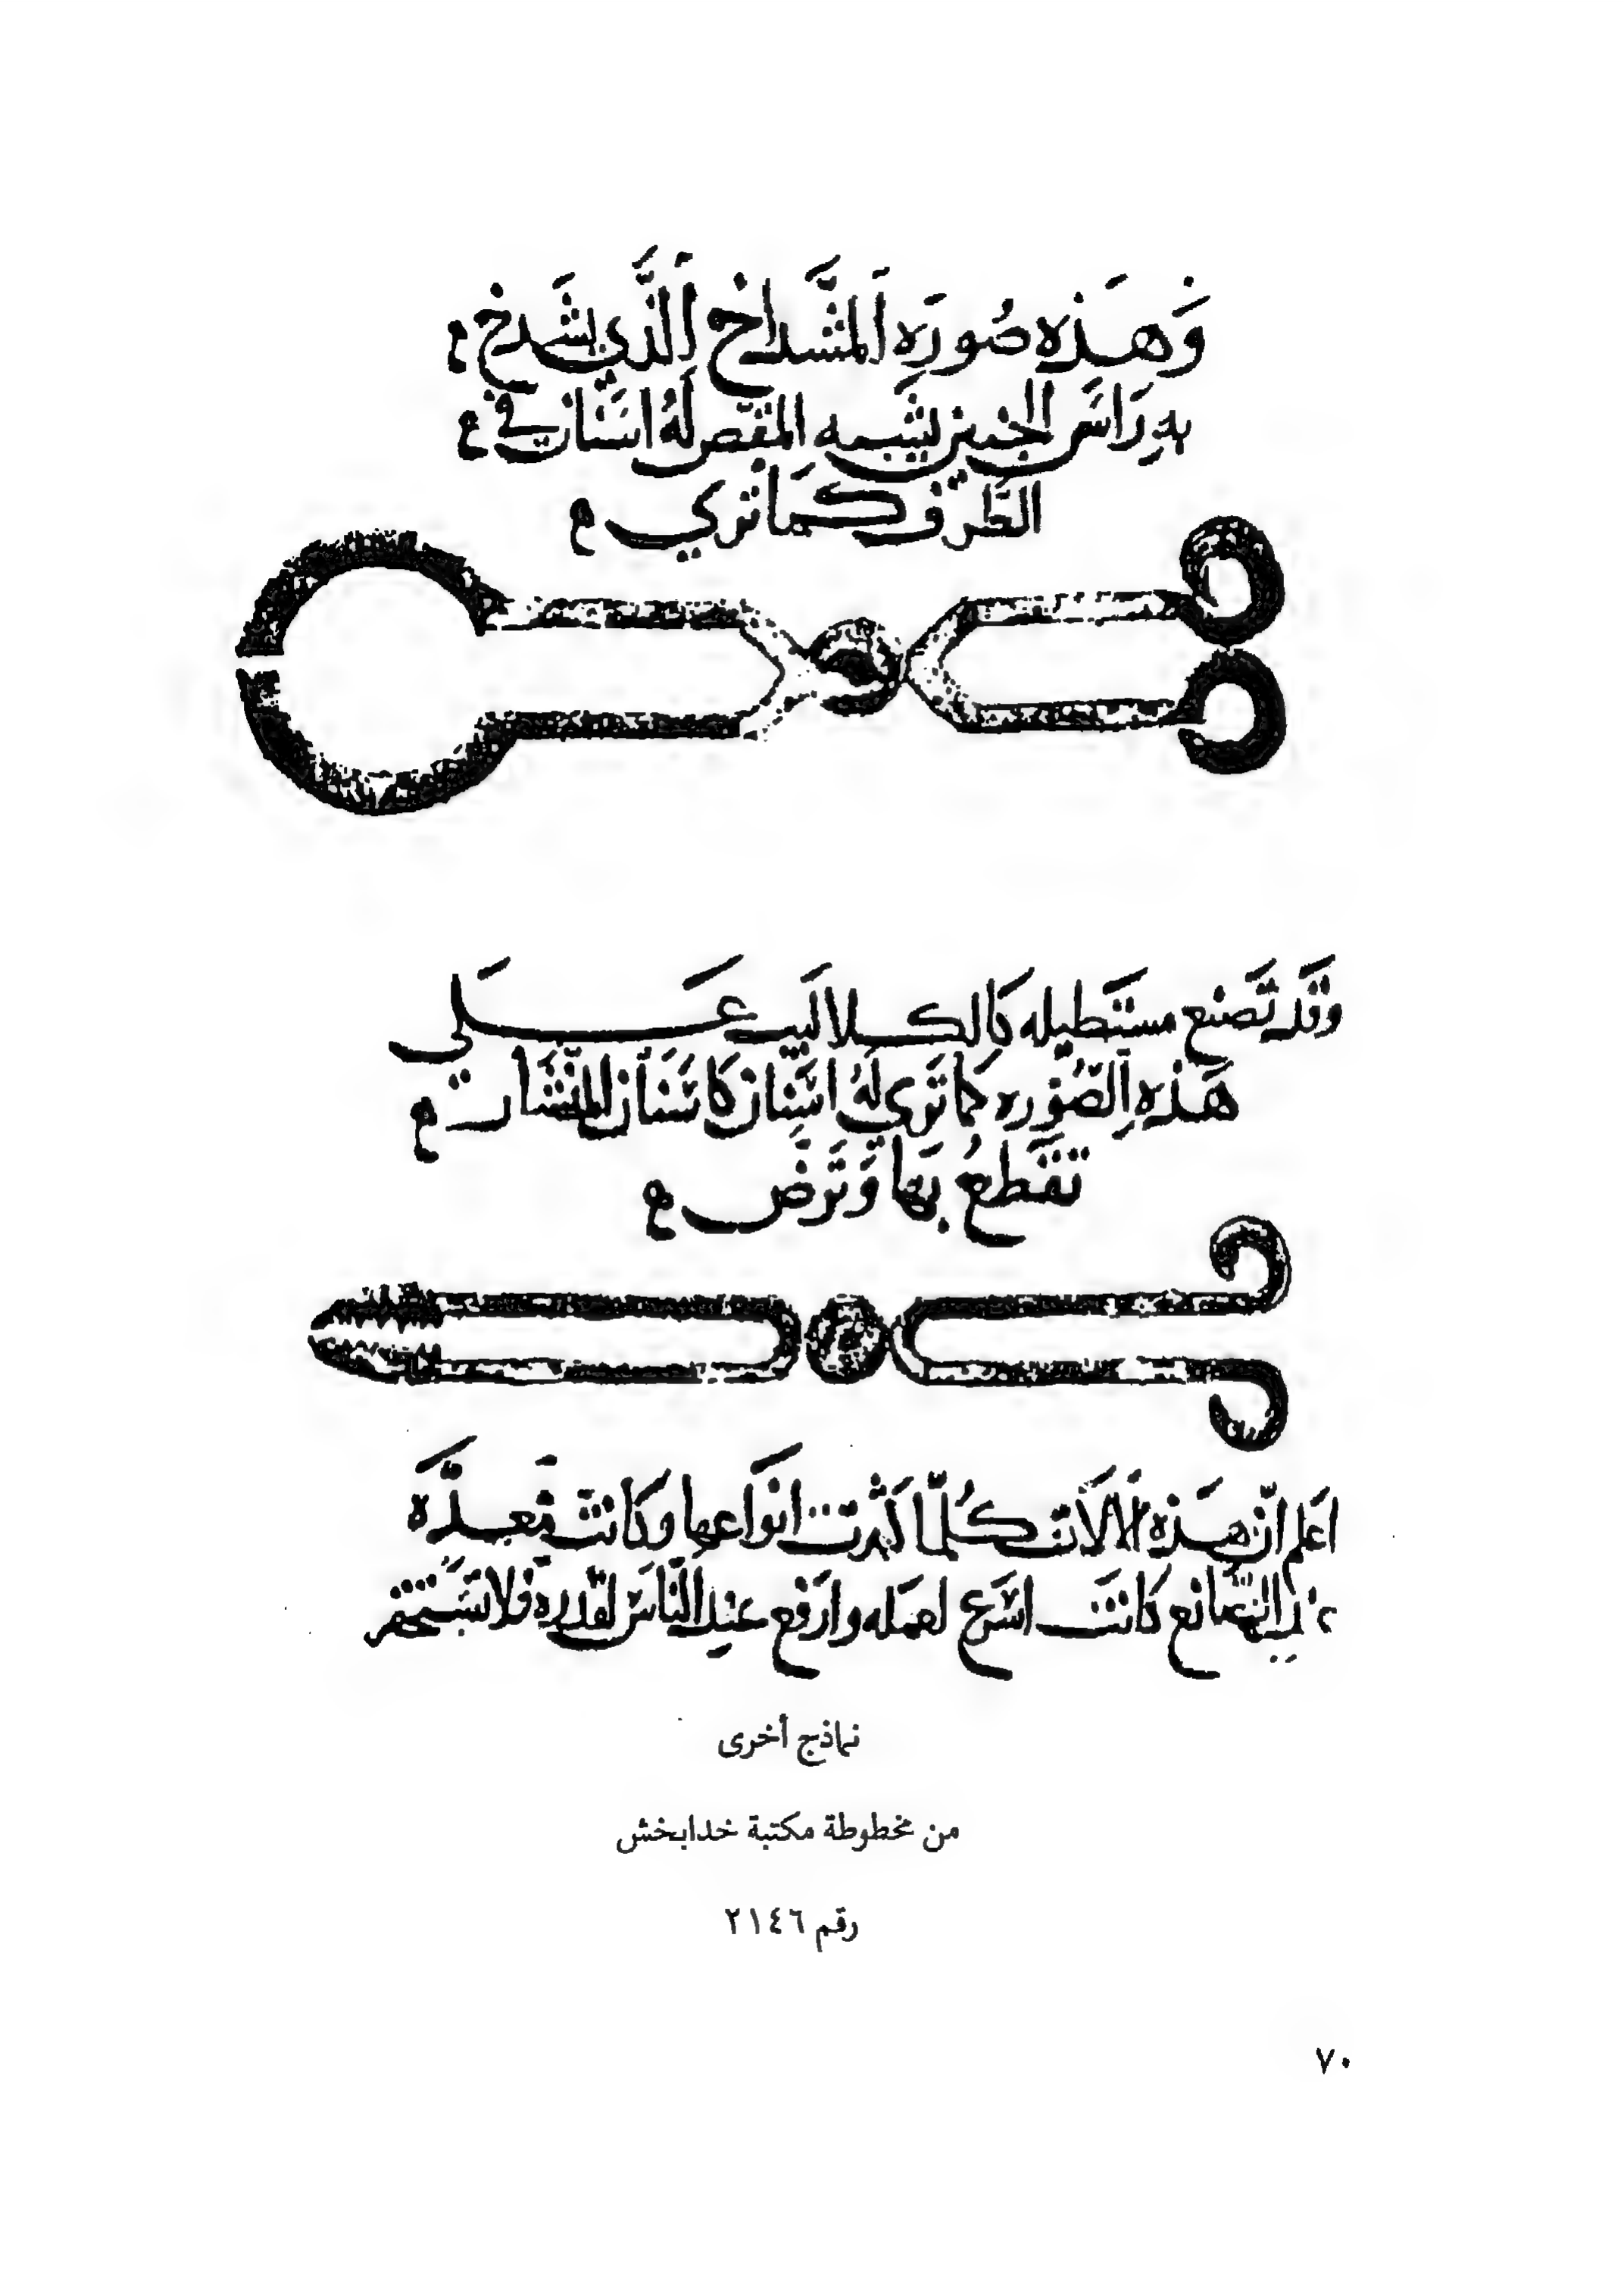 وَهَذِه صُورَه المشَّداخ الَّذي يشَدخ
بهِ رَاسَ الجنين يشبه المقص لَهُ اسنان في
الطَرَف كمَا تري
وقَد تَصَنع مستَطيله كالكلاليب عَلي
هَذِهِ الصُّوره كما تَري لهُ اسنان كاسنان المنشار
تَقَطعُ بهَا وَتَرضَ
اعَلم انّ هَذِهِ الالات كُلّما كَثرت انوَاعها وكَانت مُعَدَّه
الصَّانع كانَت اسَرع لعمَله وارَفع عنِدَ النّاس لقدره فلا تسَتحقر
نماذج أخرى
من مخطوطة مكتبة خدابخش
رقم ٢١٤٦
٧٠